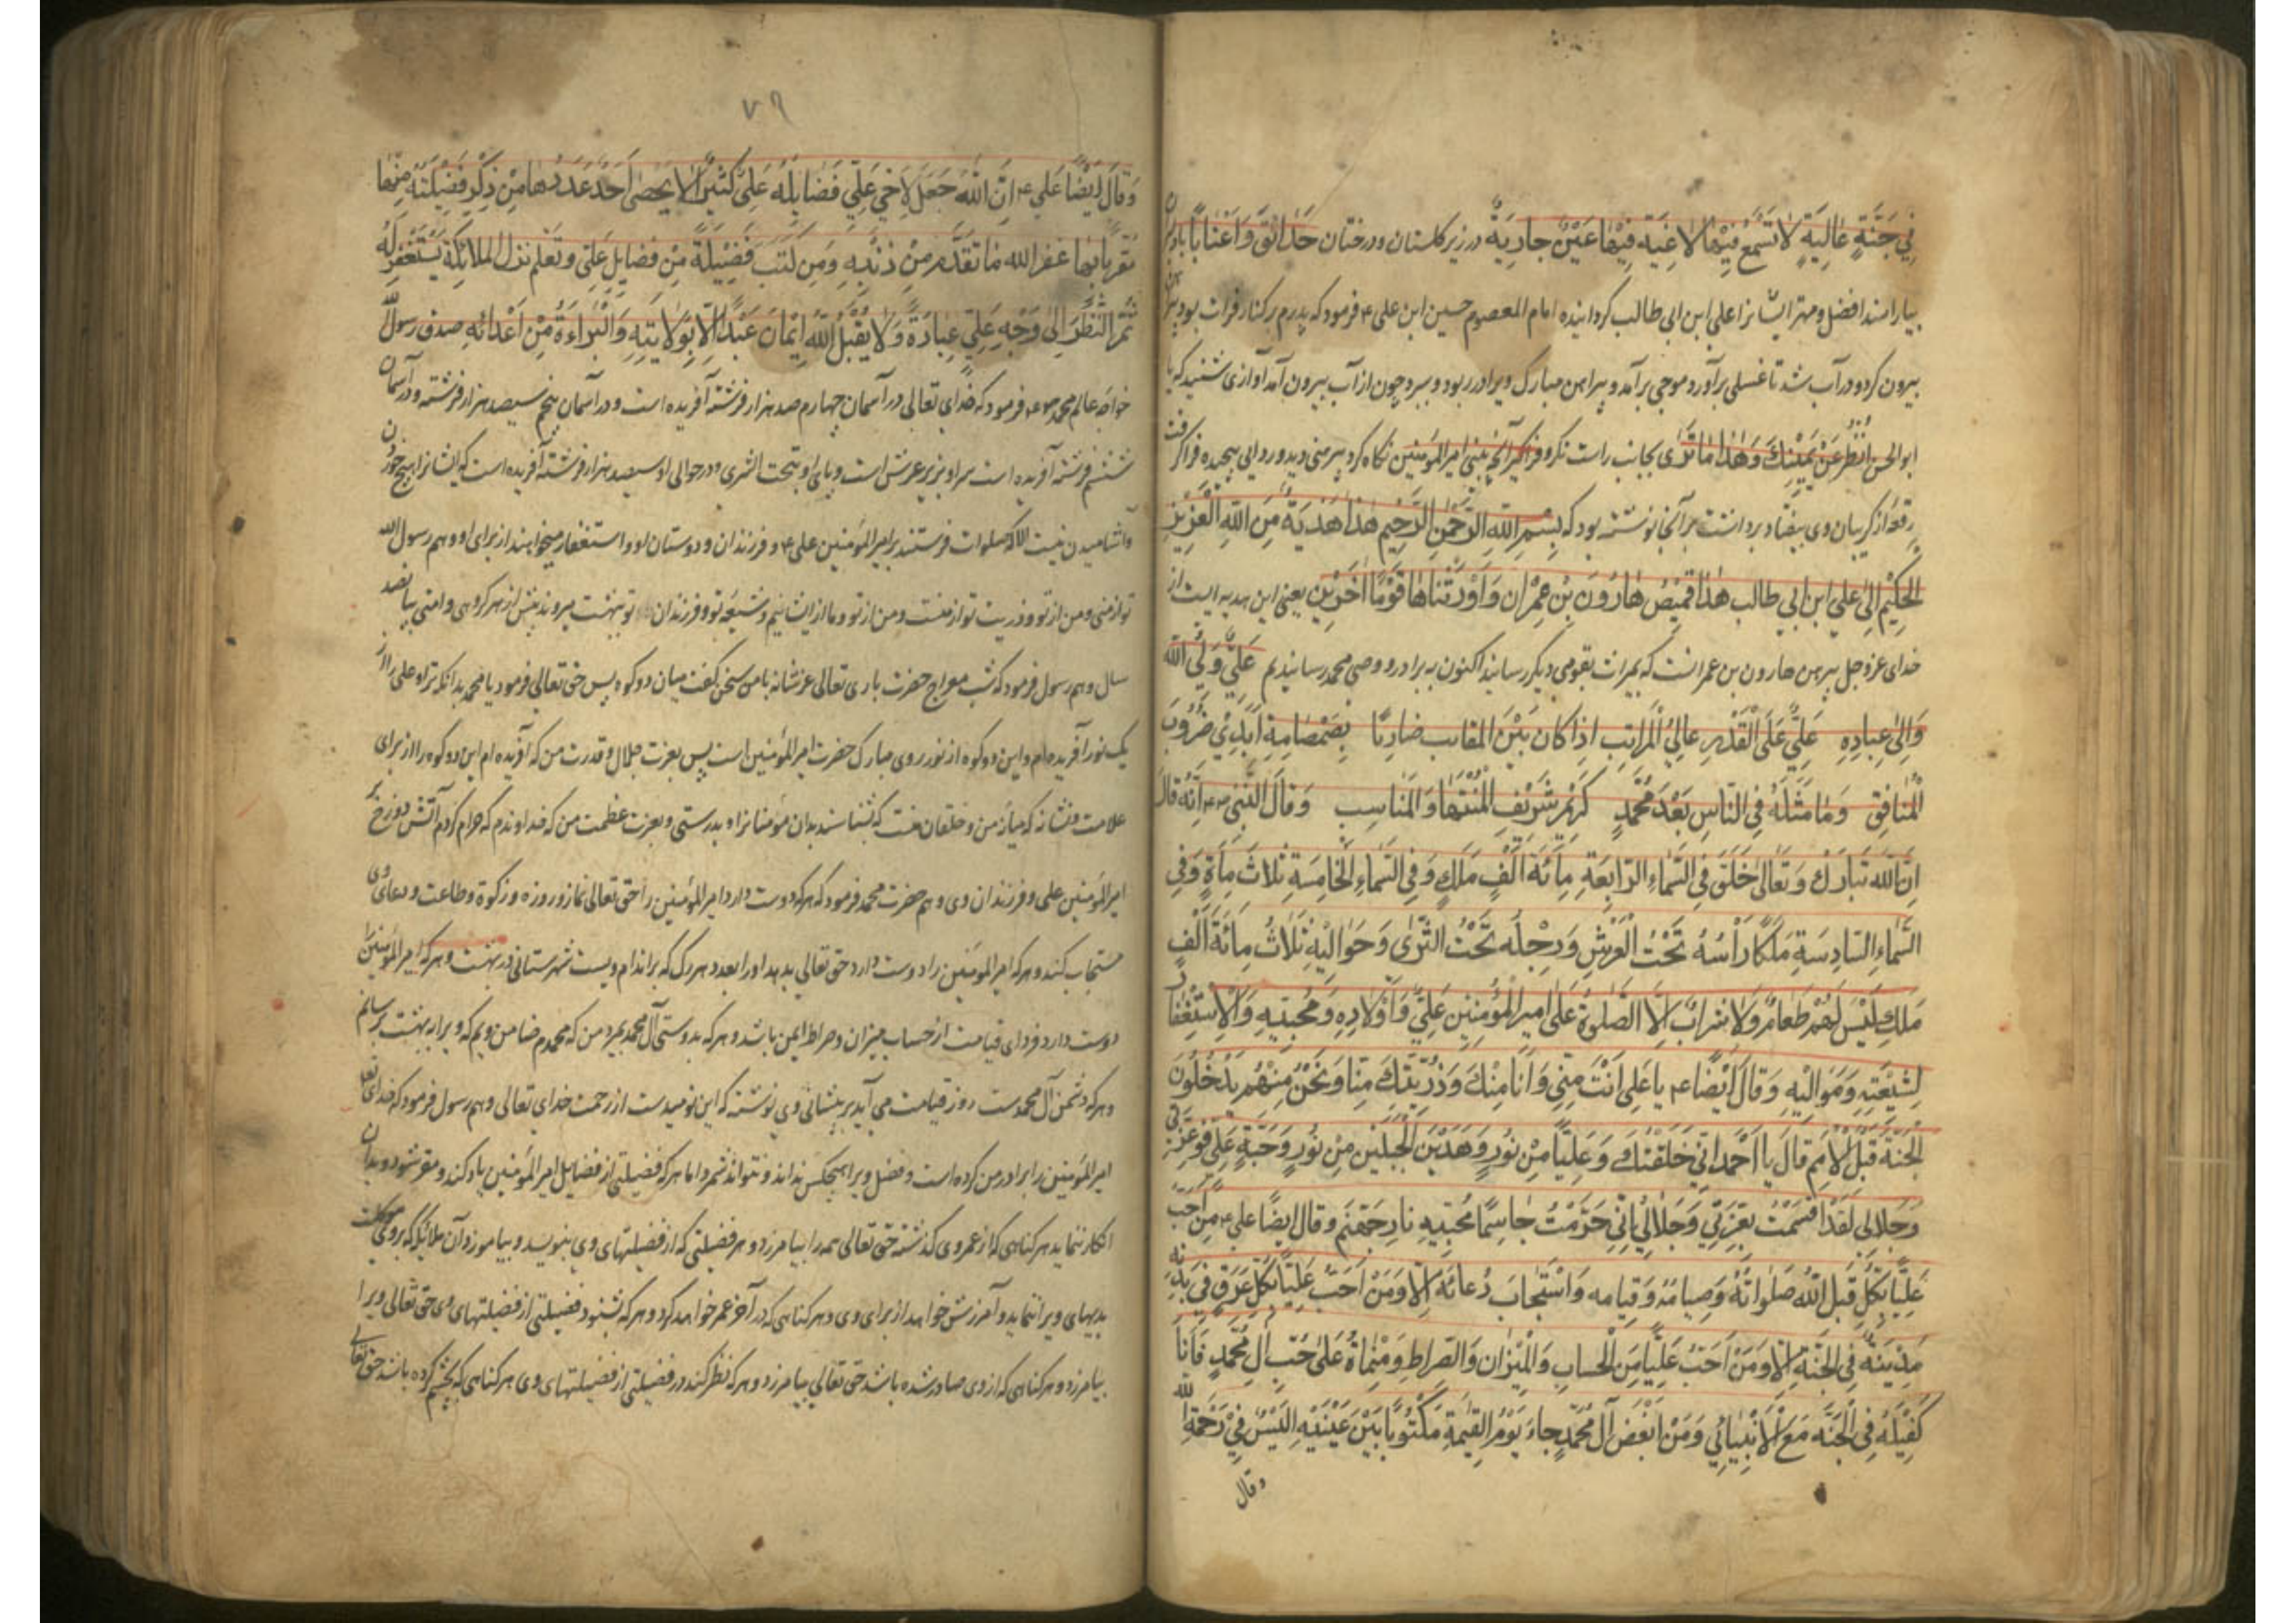 فِي جَنَّةٍ عَالِيَةٍ لَا تَسْمَعُ فِيهَا لَاغِيَةً فِيهَا عَيْنٌ جَارِيَةٌ در زیر گلستان و درختان حَدَائِقَ وَأَعْنَابًا
بیارامند افضل و مهتر ایشانرا علی ابن ابی طالب گردانیده امام المعصوم حسین ابن علی ع فرمود که پدرم بر کنار فرات بود
بیرون کرد و در آب شد تا غسلی برآورد موجی برآمد و پیراهن مبارک ویرا در ربود و ببرد چون از آب بیرون آمد آوازی شنید که یا
ابو الحسن اُنْظُرْ عَنْ يَمِينِكَ وَهٰذَا مَا تَرَى بجانب راست نگر و فراگیر آنچه بینی امیر المؤمنین نگاه کرد پیرهنی دید در ردایی پیچیده فرا گرفت
رقعه از گریبان وی بیفتاد برداشت بر آنجا نوشته بود که بِسْمِ اللهِ الرَّحْمٰنِ الرَّحِيمِ هٰذَا هَدِيَةٌ مِنَ اللهِ الْعَزِيزِ
الْحَكِيمِ اِلَى عَلِي ابن ابي طالب هٰذَا قَمِيصُ هَارُونَ بْنِ عِمْرَان وَأَوْرَثْنَاهَا قَوْمًا آخَرِينَ یعنی این هدیه ایست از
خدای عزوجل پیرهن هارون بن عمرانست که بمیراث بقومی دیگر رسانید اکنون به برادر و وصی محمد رسانیدم عَلِيٌّ وَلِيُّ اللهِ
وَالِي عِبَادِهِ عَلِيٌّ عَلَى الْقَدْرِ عَالِيُ الْمَرَاتِبِ اِذَا كَانَ بَيْنَ ضَارِبًا بِصَمْصَامِهِ
الْمُنَافِقِ وَمَا مِثْلُهُ فِي النَّاسِ بَعْدَ مُحَمَّدٍ كَرِيمٌ شَرِيفُ الْمُنْتَهَا وَالْمَنَاسِبِ وَقَالَ النَّبِي ص اَنَّهُ قَالَ
اِنَّ اللهَ تَبَارَكَ وَتَعَالَى خَلَقَ فِي السَّمَاءِ الرَّابِعَةِ مِائَةَ اَلْفِ مَلَكٍ وَفِي السَّمَاءِ الْخَامِسَةِ ثَلَاثَ مِائَةٍ وَفِي
السَّمَاءِ السَّادِسَةِ مَلَكًا رَأْسُهُ تَحْتَ الْعَرْشِ وَرِجْلُهُ تَحْتَ الثَّرَى وَحَوَالَيْهِ ثَلَاثُ مِائَةَ اَلْفِ
مَلَكٍ لَيْسَ لَهُمْ طَعَامٌ وَلَا شَرَابٌ اِلَّا الصَّلٰوةُ عَلَى اَمِيرِ الْمُؤْمِنِينَ عَلِيٍّ وَاَوْلَادِهِ وَمُحِبِّيهِ وَالْاِسْتِغْفَارُ
لِشِيعَتِهِ وَمَوَالِيهِ وَقَالَ اَيْضًا ع يَا عَلِي اَنْتَ مِنِّي وَاَنَا مِنْكَ وَذُرِّيَّتُكَ مِنَّا وَنَحْنُ مِنْهُمْ يَدْخُلُونَ
الْجَنَّةَ قَبْلَ الْاُمَمِ قَالَ يَا اَحْمَدُ اِنِّي خَلَقْتُكَ وَعَلِيًّا مِنْ نُورٍ وَهٰذَيْنِ الْجَبَلَيْنِ مِنْ نُورٍ وَجْهِ عَلِي فَوَعِزَّتِي
وَجَلَالِي لَقَدْ اَقْسَمْتُ بِعِزَّتِي وَجَلَالِي اِنِّي حَرَّمْتُ مُحِبِّيهِ نَارَ جَهَنَّمَ وَقَالَ اَيْضًا ع مَنْ اَحَبَّ
عَلِيًّا قَبِلَ اللهُ صَلَوَاتَهُ وَصِيَامَهُ وَقِيَامَهُ وَاسْتَجَابَ دُعَائَهُ اَلَا وَمَنْ اَحَبَّ عَلِيًّا بِكُلِّ عِرْقٍ فِي بَدَنِهِ
مَدِينَةً فِي الْجَنَّةِ اَلَا وَمَنْ اَحَبَّ عَلِيًّا مِنَ الْحِسَابِ وَالْمِيزَانِ وَالصِّرَاطِ وَمَنْ مَاتَ عَلَى حُبِّ آلِ مُحَمَّدٍ فَاَنَا
كَفِيلُهُ فِي الْجَنَّةِ مَعَ الْاَنْبِيَائِي وَمَنْ اَبْغَضَ آلَ مُحَمَّدٍ جَاءَ يَوْمَ الْقِيٰمَةِ مَكْتُوبًا بَيْنَ عَيْنَيْهِ اَلْيَسُ فِي رَحْمَةِ اللهِ
وقال
۷۹
وَقَالَ اَيْضًا عَلَي ع اِنَّ اللهَ جَعَلَ لِاَخِي عَلِيٍّ فَضَايِلُهُ عَلِيَّ كَثِيرًا لَا يُحْصَى اَحَدٌ عَدَدُهَا مَنْ ذَكَرَ فَضِيلَتَهُ مِنْهَا
مُقِرًّا بِهَا غَفَرَ الله مَا تَقَدَّمَ مِنْ ذَنْبِهِ وَمَنْ كَتَبَ فَضِيلَةً مِنْ فَضَايِلِ عَلِي الْمَلَائِكَةُ يَسْتَغْفِرُ لَهُ
ثُمَّ النَّظَرُ اِلَى وَجْهِ عَلِيٍّ عِبَادَةٌ وَلَا يَقْبَلُ اللهُ اِيمَانَ عَبْدٍ اِلَّا بِوَلَايَتِهِ وَالْبَرَاءَةُ مِنْ اَعْدَائِهِ صدق رسول الله
خواجه عالم محمد ص فرمود که خدای تعالی در آسمان چهارم صد هزار فرشته آفریده است و در آسمان پنجم سیصد هزار فرشته و در آسمان
ششم فرشته آفریده است سر او بزیر عرش است و پای او بتحت الثری و در حوالی او سیصد هزار فرشته آفریده است که ایشانرا هیچ خوردن
و آشامیدن نیست الا که صلوات فرستند بر امیر المؤمنین علی ع و فرزندان و دوستان او و استغفار میخواهند از برای او و هم رسول الله
تو از منی و من از تو و ذریت تو از منست و من از تو و ما از ایشانیم و شیعه تو و فرزندان تو ببهشت میروند پیش از هر گروهی و امتی بپانصد
سال و هم رسول فرمود که شب معراج حضرت باری تعالی عزشانه با من سخن گفت میان دو کوه پس حق تعالی فرمود یا محمد بدانکه ترا و علی را از
یک نور آفریده ام و این دو کوه از نور روی مبارک حضرت امیر المؤمنین است پس بعزت جلال و قدرت من که آفریده ام این دو کوه را از برای
علامت و نشانه که میان من و خلقان منست که بشناسند بدان مؤمنانرا و بدرستی و بعزت عظمت من که خداوندم که حرام کردم آتش دوزخ بر
امیر المؤمنین علی و فرزندان وی و هم حضرت محمد فرمود که هر که دوست دارد امیر المؤمنین را حق تعالی نماز و روزه و زکوة و طاعت و دعای وی
مستجاب کند و هر که امیر المؤمنین را دوست دارد حق تعالی بدهد او را بعدد هر رگ که بر اندام ویست شهرستانی در بهشت و هر که امیر المؤمنین را
دوست دارد فردای قیامت از حساب میزان و صراط ایمن باشد و هر که بدوستی آل محمد بمیرد من که محمدم ضامن ویم که ویرا به بهشت رسانم
و هر که دشمن آل محمدست روز قیامت می آید بر پیشانی وی نوشته که این نومیدست از رحمت خدای تعالی و هم رسول فرمود که خدای تعالی
امیر المؤمنین را برادر من کرده است و فضل ویرا هیچکس نداند و نتواند شمرد اما هر که فضیلتی از فضایل امیر المؤمنین یاد کند و مقر شود بدان
انکار ننماید هر گناهی که از عمر وی گذشته حق تعالی همه را بیامرزد و هر فضیلتی که از فضیلتهای وی بنویسد و بیاموزد آن ملائیکه که بر وی موکلست
بدیهای ویرا ننماید و آمرزش خواهد از برای وی و هر گناهی که در آخر عمر خواهد کرد و هر که بشنود فضیلتی از فضیلتهای وی حق تعالی ویرا
بیامرزد و هر گناهی که از وی صادر شده باشد حق تعالی بیامرزد و هر که نظر کند در فضیلتی از فضیلتهای وی هر گناهی که بچشم کرده باشد حق تعالی